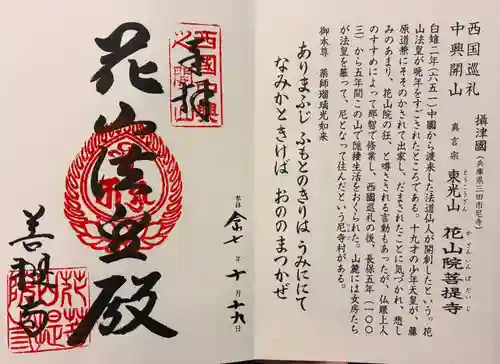 西国巡礼
中興開山
攝津國（兵庫県三田市尼寺）
真言宗 東光山 花山院菩提寺
とうこうざん
かざんいんぼだいじ
白雉二年（六五一）中国から渡来した法道仙人が開創したという。花
山法皇が晩年をすごされたところである。十九才の少年天皇が、藤
原道兼にそそのかされて出家し、だまされたことに気づかれ、悲し
みのあまり、花山院の狂、と噂される言動もあったが、仏眼上人
のすすめによって那智で修業し、西国巡礼の後、長保五年（一〇〇
三）から五年間この山で隠棲生活をおくられた。山麓には女房たち
が法皇を慕って、尼となって住んだという尼寺村がある。
御本尊 薬師瑠璃光如来
ありまふじ ふもとのきりは うみににて
なみかときけば おののまつかぜ
奉拝
西国中興
之開山
花山法皇殿
令七年十月十九日
善提寺